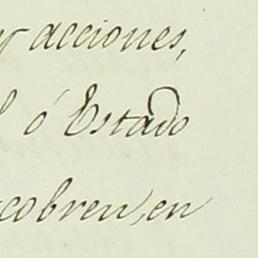 acciones,
ó Estado
cobren, en